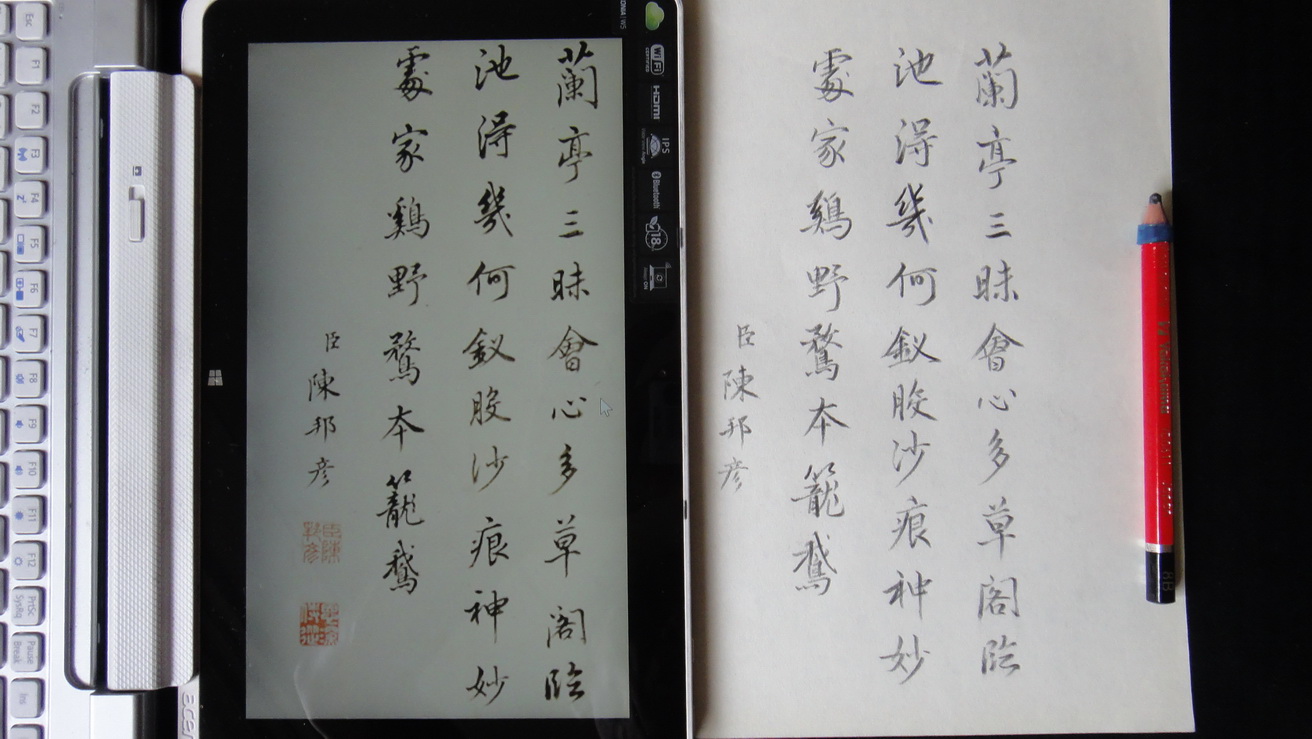 Esc
F1
F2
F3
F4
F5
F6
F7
F8
F9
F10
F11
F12
PrtSc
SysRq
Pause
Break
Ins
acer
蘭亭三昧會心多草閣臨
池得幾何釵股沙痕神妙
處家鷄野鶩本籠鵝
臣陳邦彥
WiFi
HDMI
IPS
Bluetooth
18
蘭亭三昧會心多草閣臨
池得幾何釵股沙痕神妙
處家鷄野鶩本籠鵝
臣陳邦彥